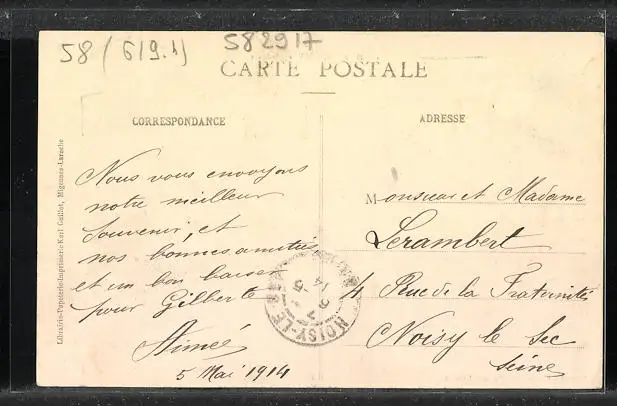 58 (619.1)
582917
CARTE POSTALE
CORRESPONDANCE
ADRESSE
Nous vous envoyons
notre meilleur
souvenir, et
nos bonnes amitiés
et un bon baiser
pour Gilberte
Aimée
5 Mai 1914
Monsieur et Madame
Lerambert
4 Rue de la Fraternité
Noisy le Sec
Seine
NOISY-LE-SEC
Librairie-Papeterie-Imprimerie Karl Guillot, Migennes-Laroche